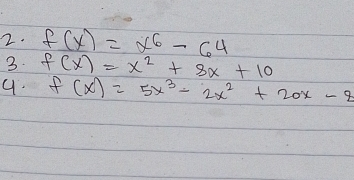 2. f(x) = x⁶ - 64
3. f(x) = x² + 8x + 10
4. f(x) = 5x³ - 2x² + 20x - 8